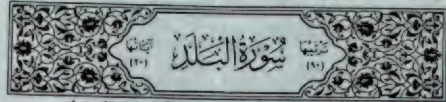 ترتيبها سُورَةُ الْبَلَدِ آياتها
(٩٠) (٢٠)